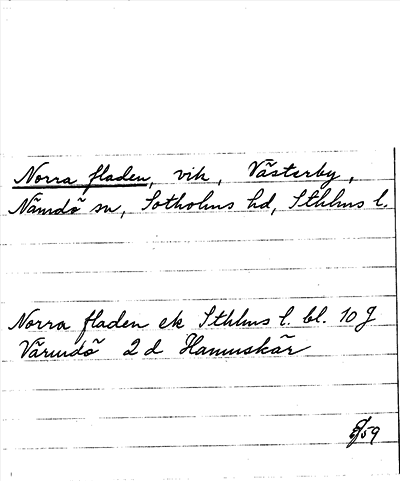 Norra fladen, vik, Västerby,
Nämdö sn, Sotholms hd, Sthlms l.
Norra fladen ek Sthlms l. bl. 10 J
Värmdö 2 d Hamnskär
/59